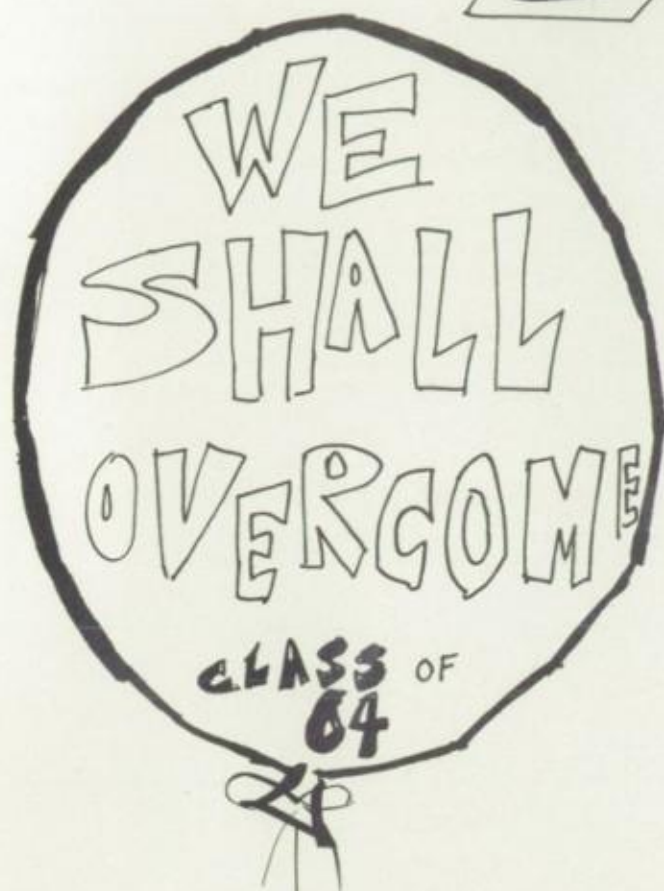 WE
SHALL
OVERCOME
CLASS OF
64